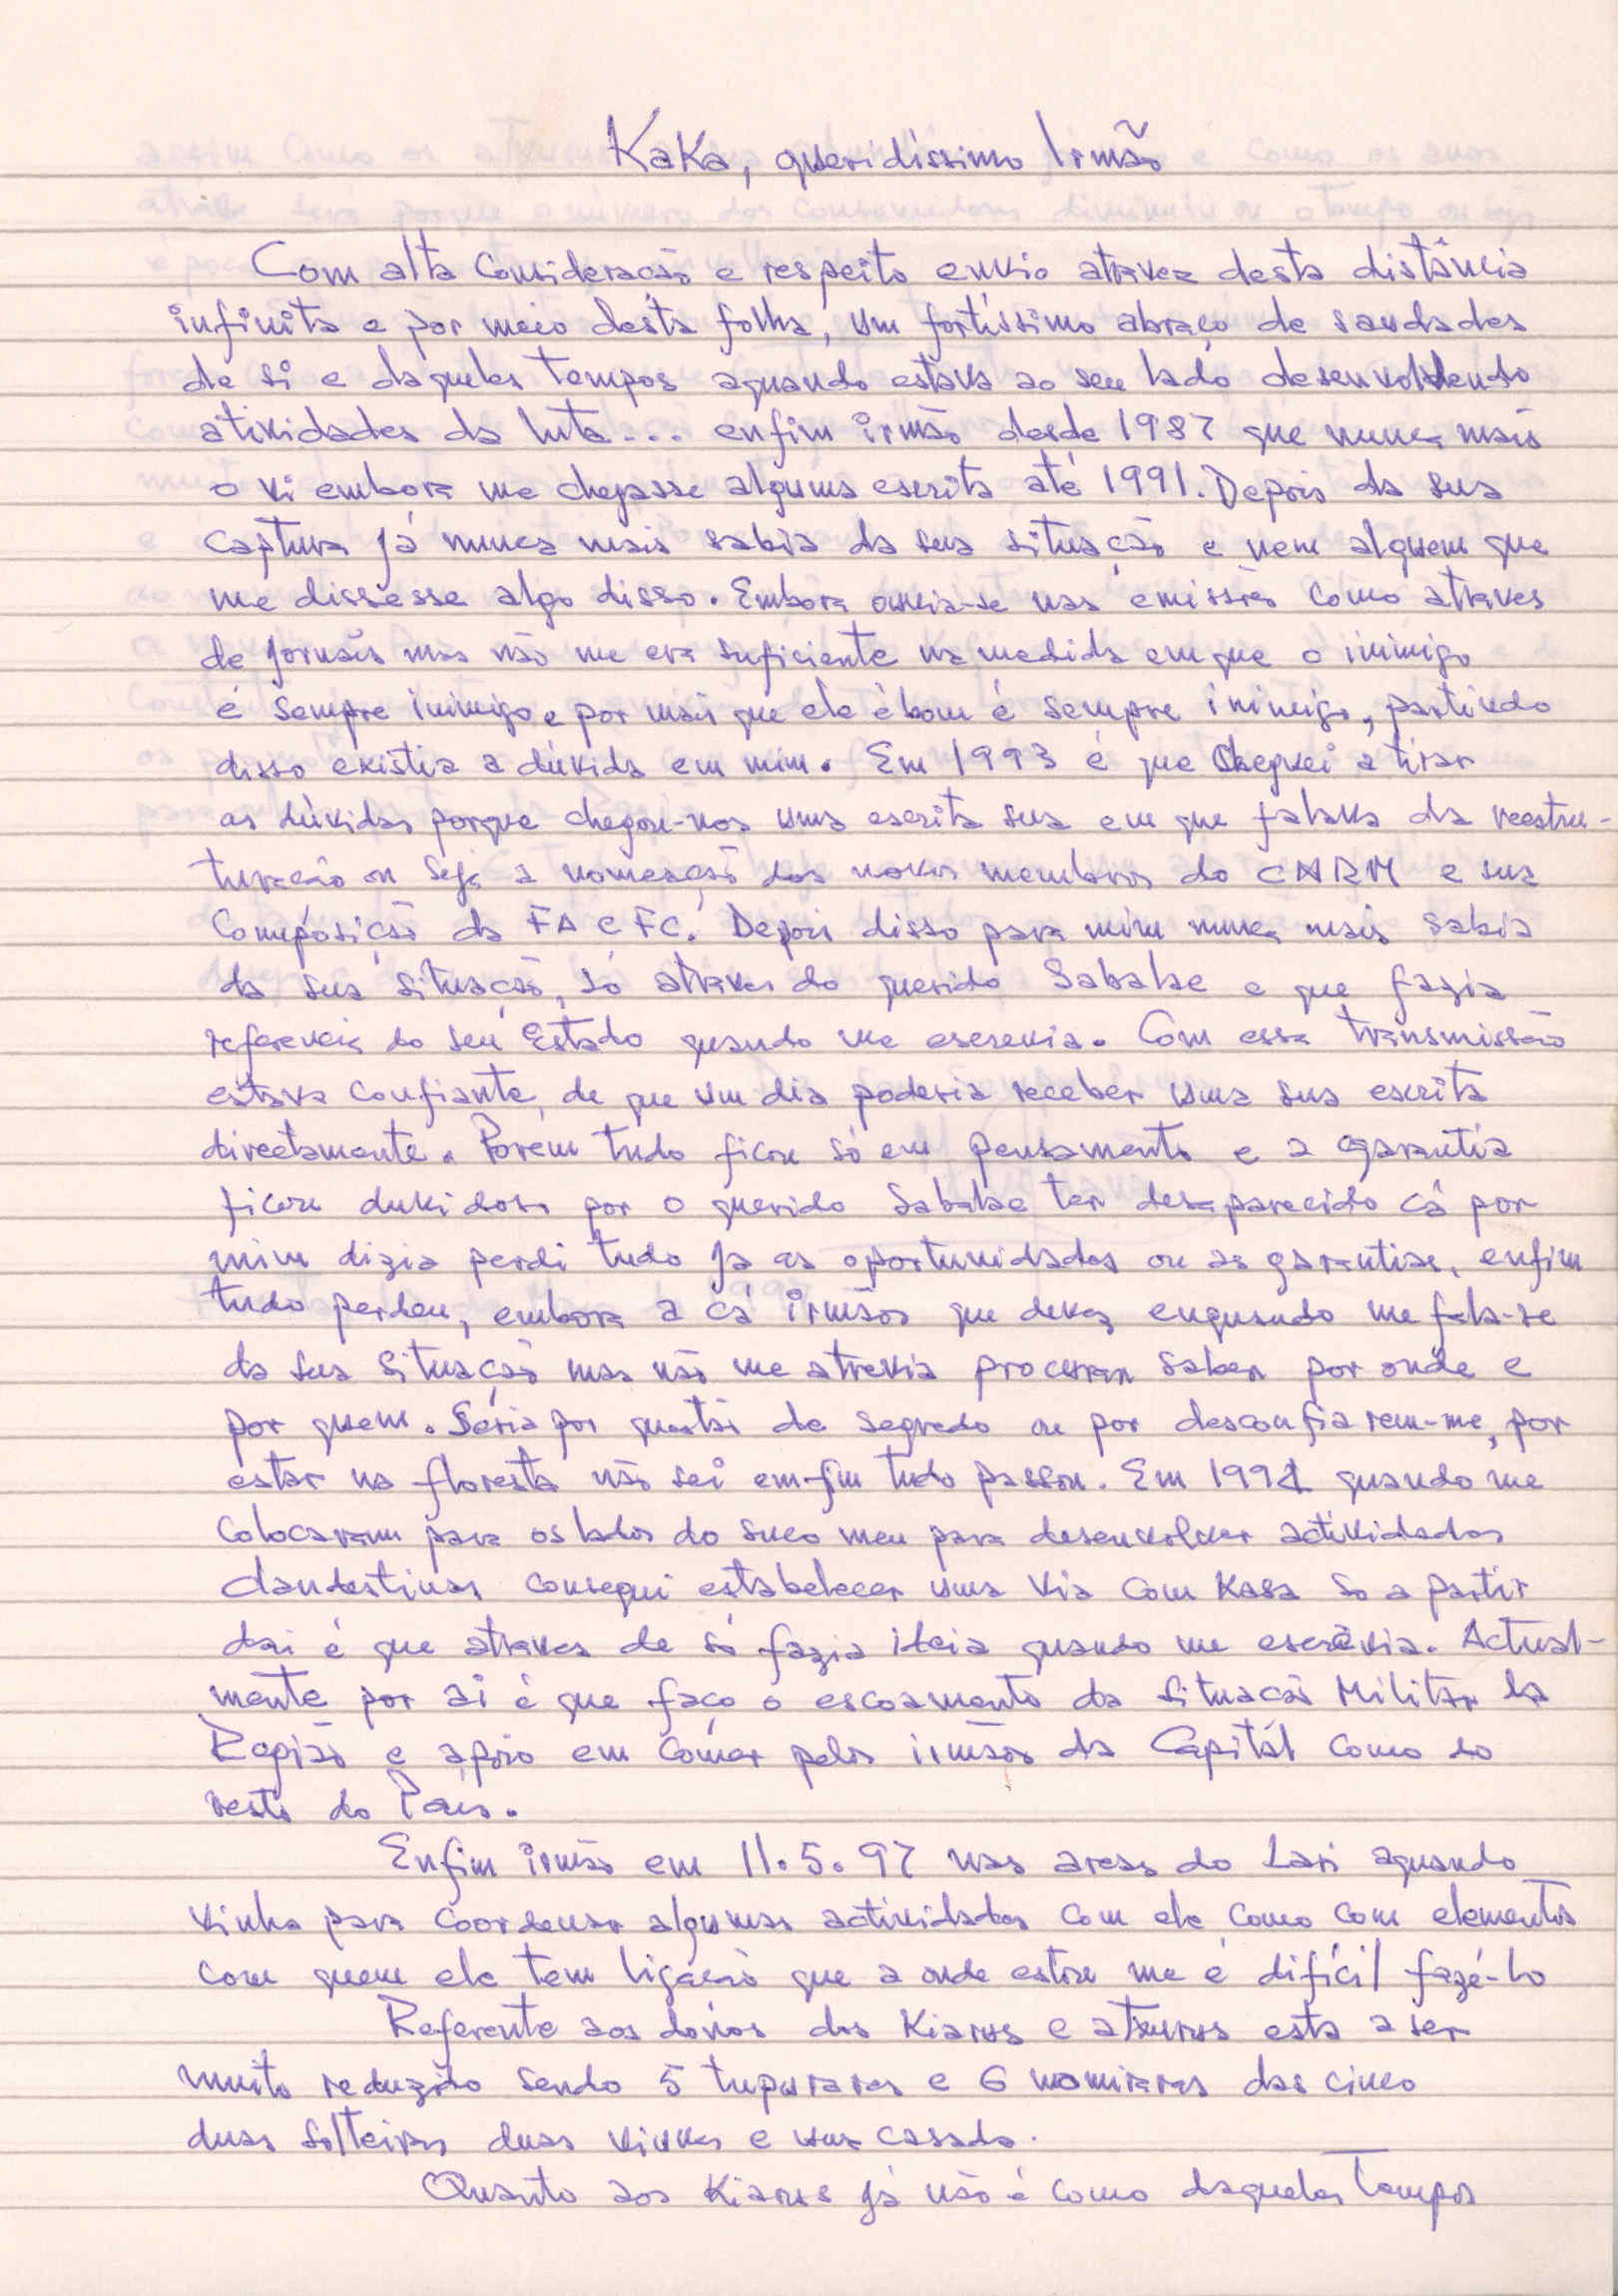 KaKa, queridissimo Irmão
Com alta Consideração e respeito envio atravez desta distância
infinita e por meio desta folha, um fortissimo abraço de saudades
de si e daqueles tempos aquando estava ao seu lado desenvolvendo
atividades da luta... enfim irmão desde 1987 que nunca mais
o vi embora me chegasse alguma escrita até 1991. Depois da sua
captura já nunca mais sabia da sua situação e nem alguem que
me dissesse algo disso. Embora ouvia-se nas emissões como atraves
de jornais mas não me era suficiente na medida em que o inimigo
é sempre inimigo e por mais que ele é bom é sempre inimigo, partindo
disso existia a dúvida em mim. Em 1993 é que cheguei a tirar
as dúvidas porque chegou-nos uma escrita sua em que falava da reestru-
turação ou seja a nomeação dos novos membros do CNRM e sua
Composição da FA e FC. Depois disso para mim nunca mais sabia
da sua situação, só atraves do querido Sabalae e que fazia
referencia do seu Estado quando me escrevia. Com essa transmissão
estava confiante, de que um dia poderia receber uma sua escrita
directamente. Porém tudo ficou só em pensamento e a garantia
ficou duvidosa por o querido Sabalae ter desaparecido cá por
mim dizia perdi tudo já as oportunidades ou as garantias, enfim
tudo perdeu, embora a cá irmãos que devez enquando me fala-se
da sua situação mas não me atrevia procurar saber por onde e
por quem. Seria por questão de segredo ou por desconfiarem-me, por
estar na floresta não sei em-fim tudo passou. Em 1991 quando me
colocaram para os lados do suco meu para desenvolver actividades
clandestinas consegui estabelecer uma via com Kasa so a partir
dai é que atraves de só fazia ideia quando me escrevia. Actual-
mente por ai é que faço o escoamento da situação Militar da
Região e apoio em comer pelos irmãos da Capitál como do
resto do País.
Enfim irmão em 11.5.97 nas areas do Lari aquando
vinha para coordenar algumas actividades com ele como com elementos
com quem ele tem ligação que a onde estou me é difícil fazê-lo
Referente aos donos dos Kiarus e atxurus esta a ser
muito reduzido sendo 5 tupurares e 6 nomirares das cinco
duas solteiras duas viuvas e uma casada.
Quanto aos Kiarus já não é como daqueles Tempos